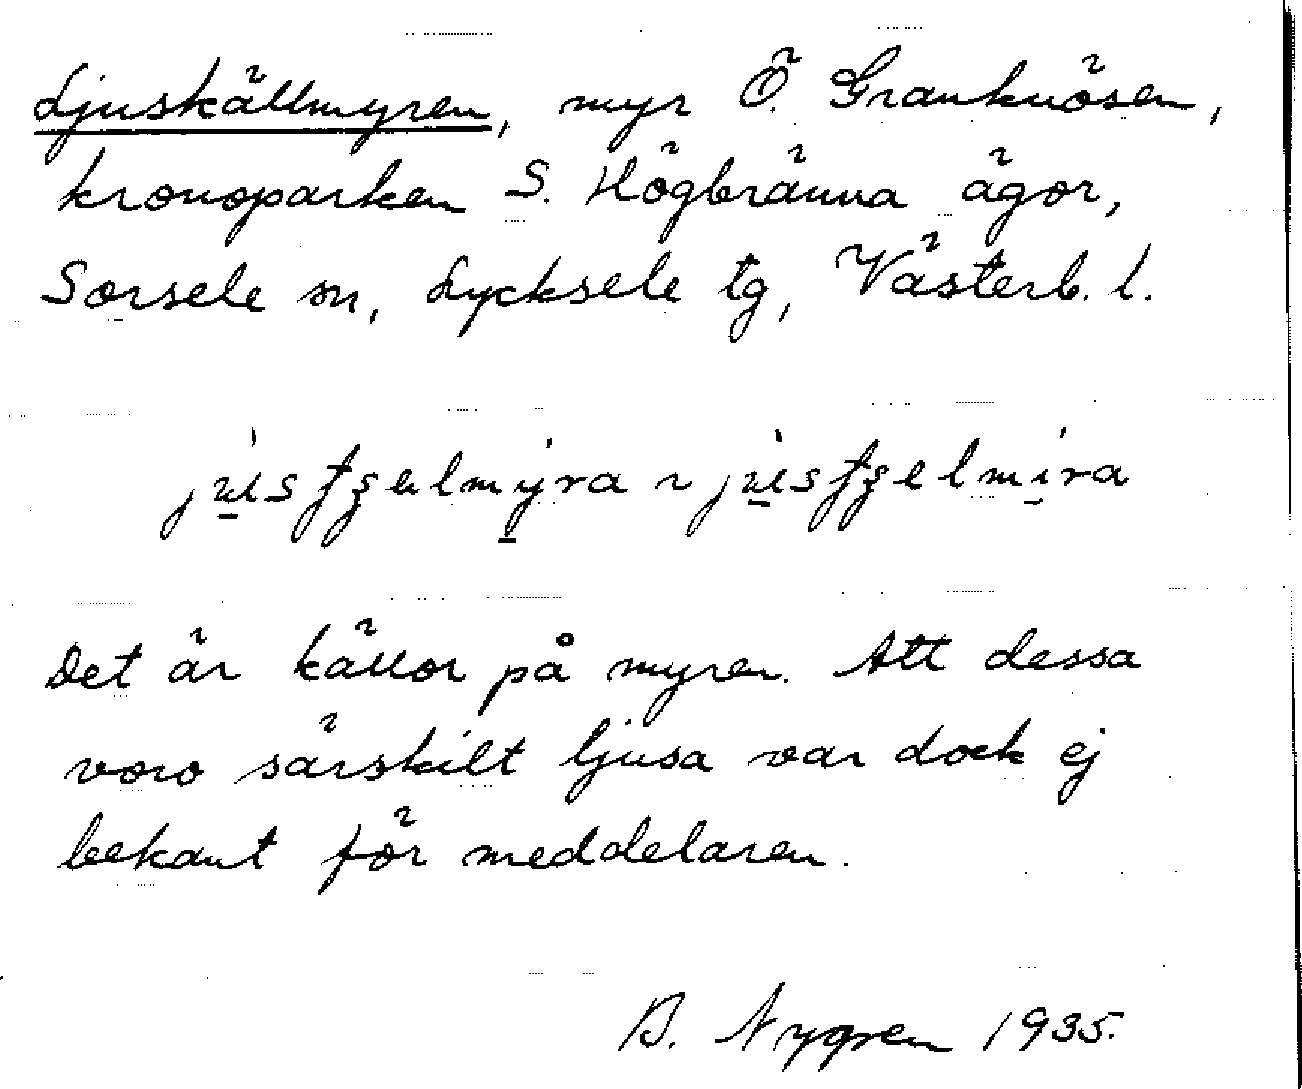 Ljuskällmyren, myr Ö. Granknösen,
kronoparken S. Högbränna ägor,
Sorsele sn, Lycksele tg, Västerb. l.
Det är källor på myren. Att dessa
voro särskilt ljusa var dock ej
bekant för meddelaren.
B. Nygren 1935.